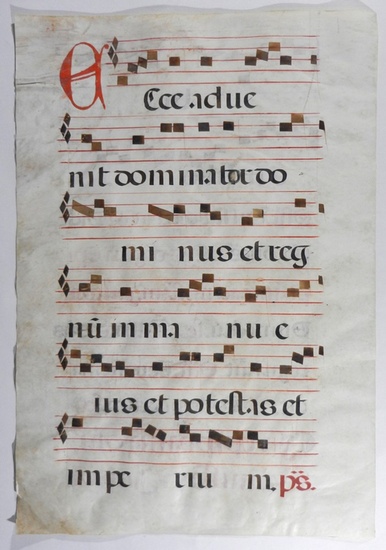 Ecce aduc
nit dominator do
mi nus et reg
nũ in ma nu e
ius et potestas et
impe riu m. p̈s.